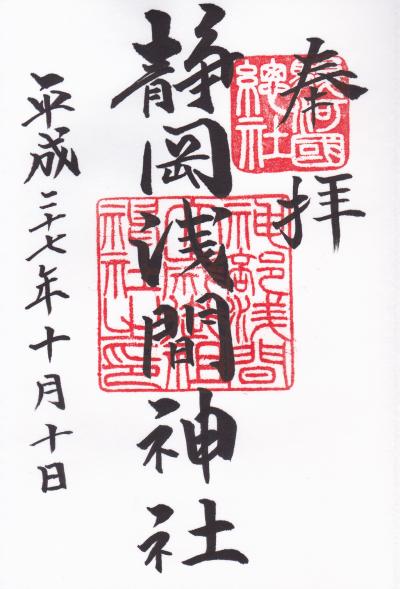 奉拝
駿河國
總社
静岡浅間神社
神部浅間
神社之印
平成二十七年十月十日